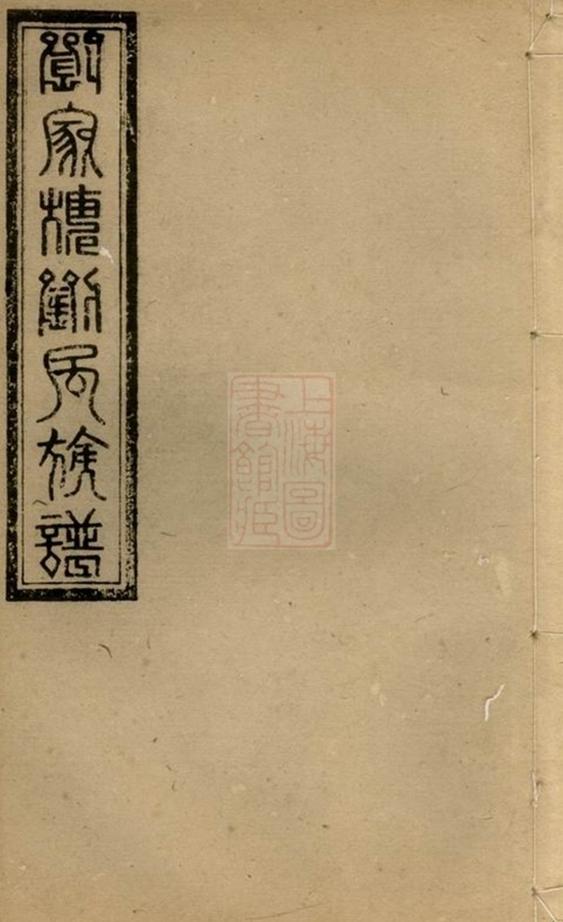 劉家樓劉氏族譜
上海圖
書館藏